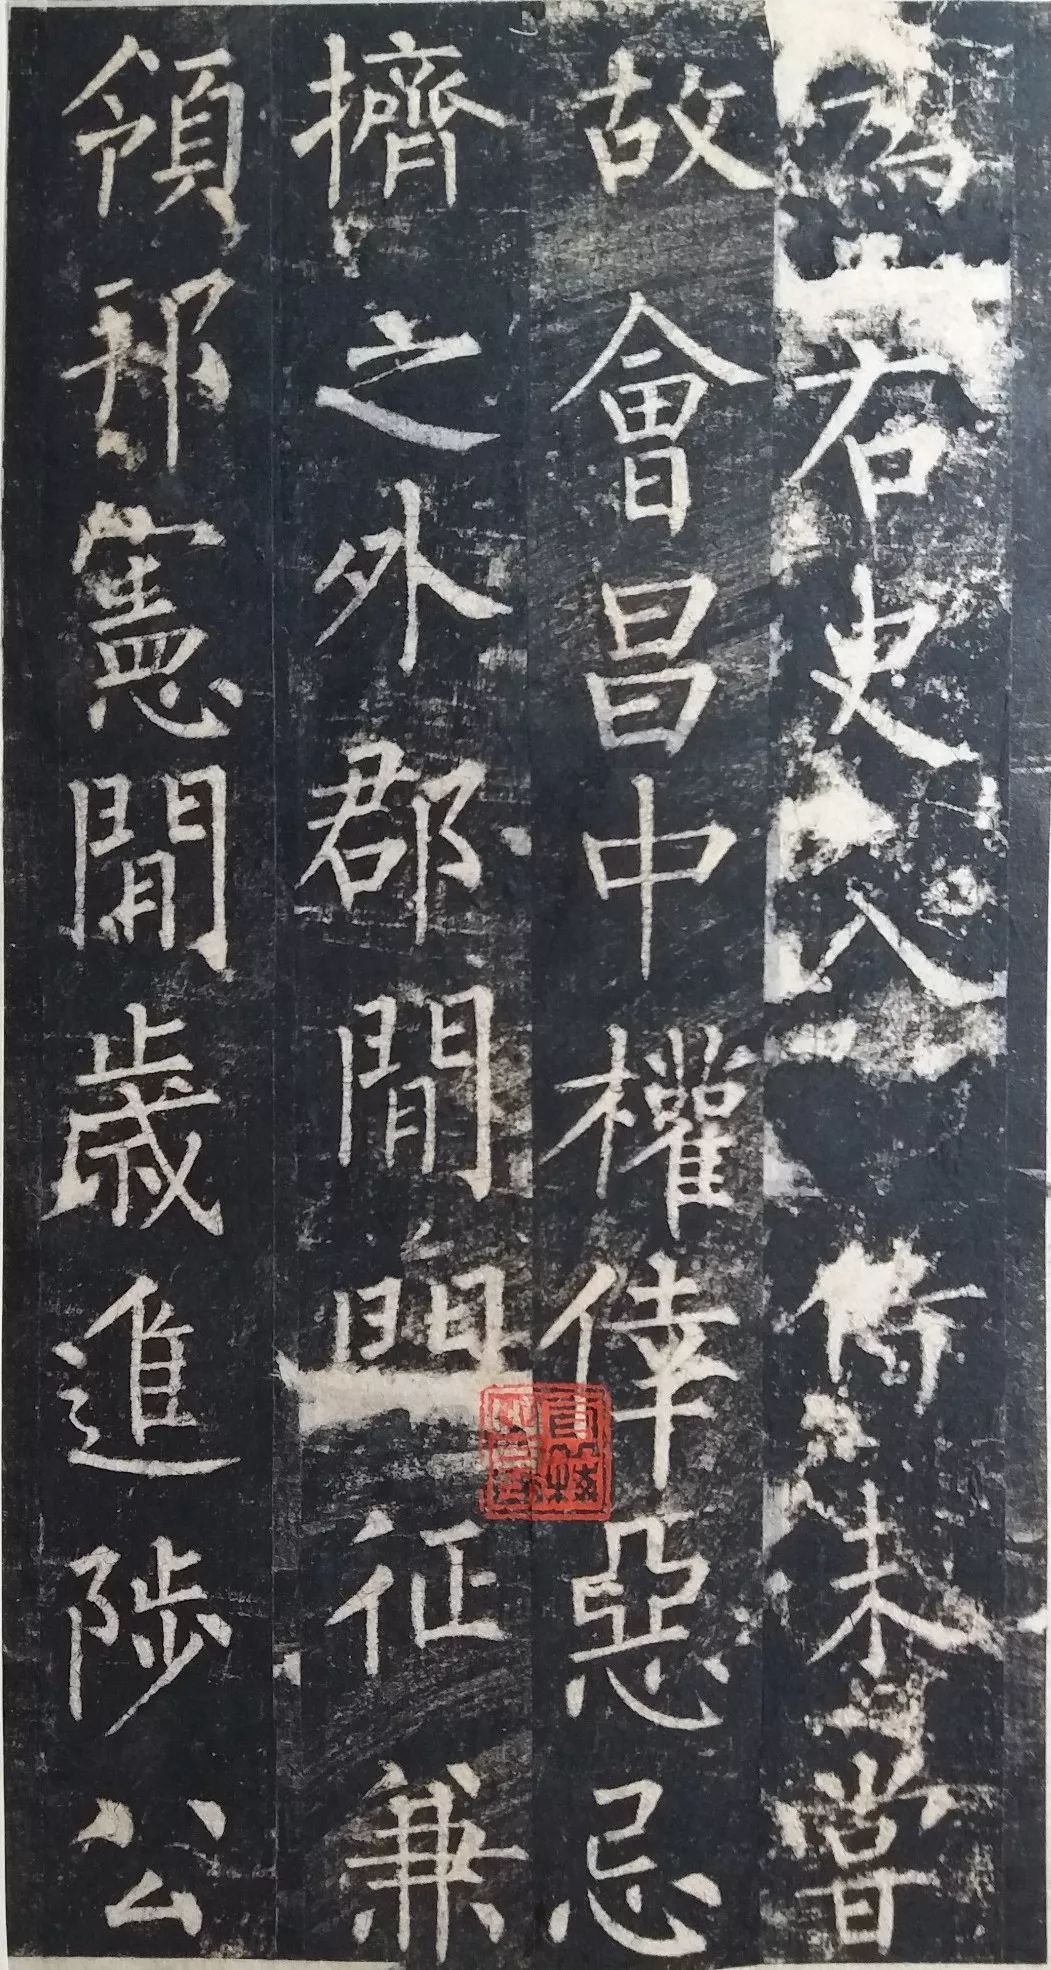 為右史入未嘗
故會昌中權倖惡忌
擠之外郡閒征兼
領邦憲閒歲進陟公